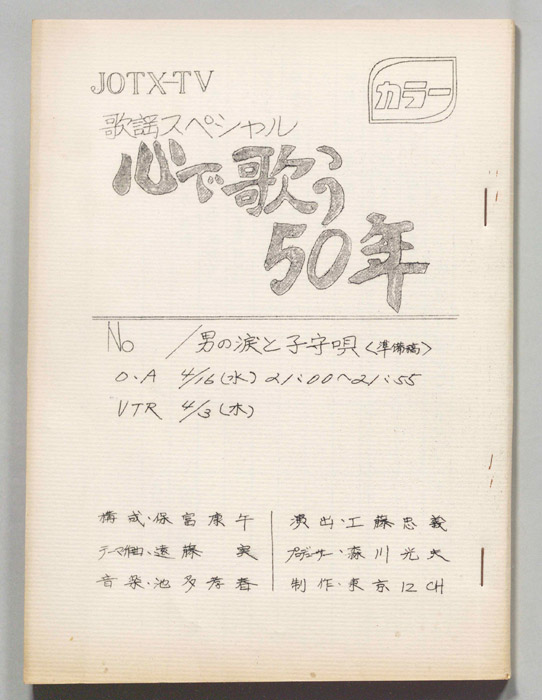 JOTX-TV
カラー
歌謡スペシャル
心で歌う
50年
No 1 男の涙と子守唄〈準備稿〉
O.A 4/16(水) 21:00〜21:55
VTR 4/3(木)
構成・保富康午
テーマ作曲・遠藤実
音楽・池多孝春
演出・工藤忠義
プロデューサー・森川光夫
制作・東京12CH